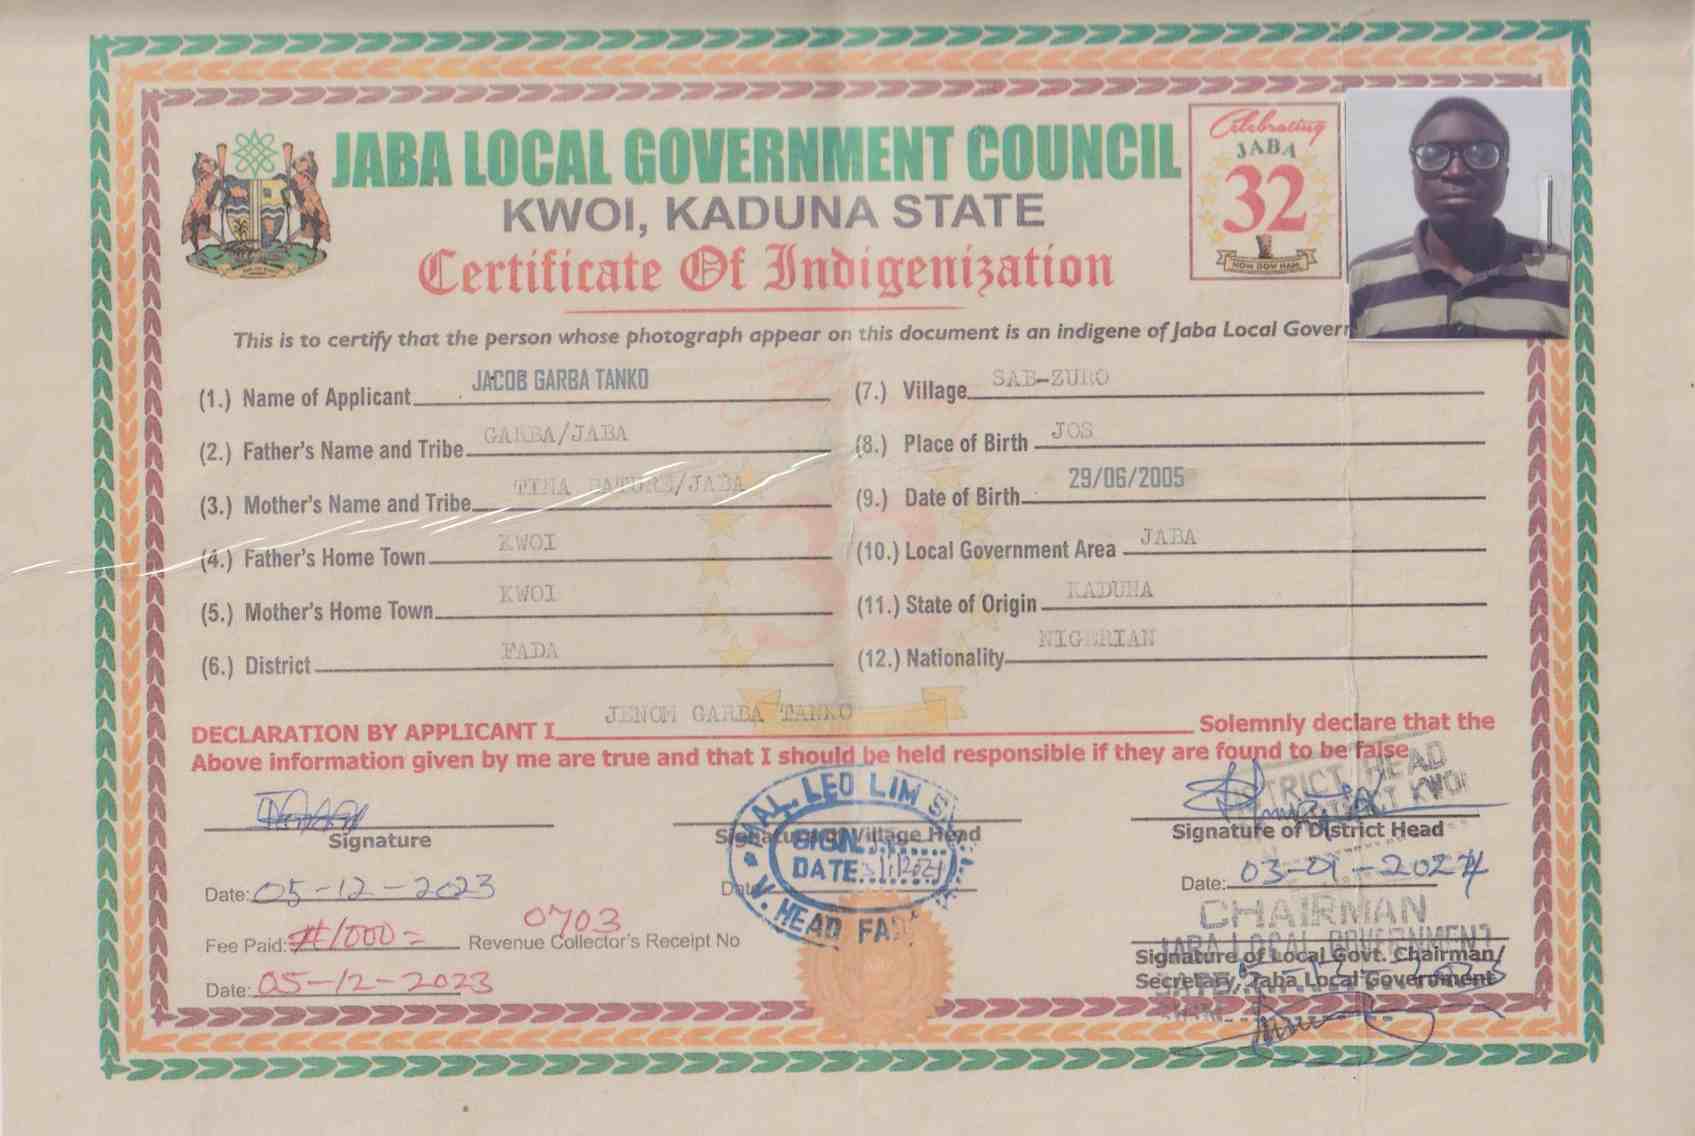 JABA LOCAL GOVERNMENT COUNCIL
KWOI, KADUNA STATE
Certificate Of Indigenization
Celebrating
JABA
32
This is to certify that the person whose photograph appear on this document is an indigene of Jaba Local Govern
(1.) Name of Applicant JACOB GARBA TANKO
(2.) Father's Name and Tribe GARBA/JABA
(3.) Mother's Name and Tribe TINA /JABA
(4.) Father's Home Town KWOI
(5.) Mother's Home Town KWOI
(6.) District FADA
(7.) Village SAB-ZURO
(8.) Place of Birth JOS
(9.) Date of Birth 29/06/2005
(10.) Local Government Area JABA
(11.) State of Origin KADUNA
(12.) Nationality NIGERIAN
DECLARATION BY APPLICANT I JENOM GARBA TANKO Solemnly declare that the
Above information given by me are true and that I should be held responsible if they are found to be false
Signature
Date: 05-12-2023
Fee Paid: ₦1000= Revenue Collector's Receipt No 0703
Date: 05-12-2023
Signature of Village Head
Date
MAL. LEO LIM
SIGN
DATE
V. HEAD
DISTRICT HEAD
DISTRICT KWOI
Signature of District Head
Date: 03-01-2024
CHAIRMAN
JABA LOCAL GOVERNMENT
Signature of Local Govt. Chairman/
Secretary, Jaba Local Government